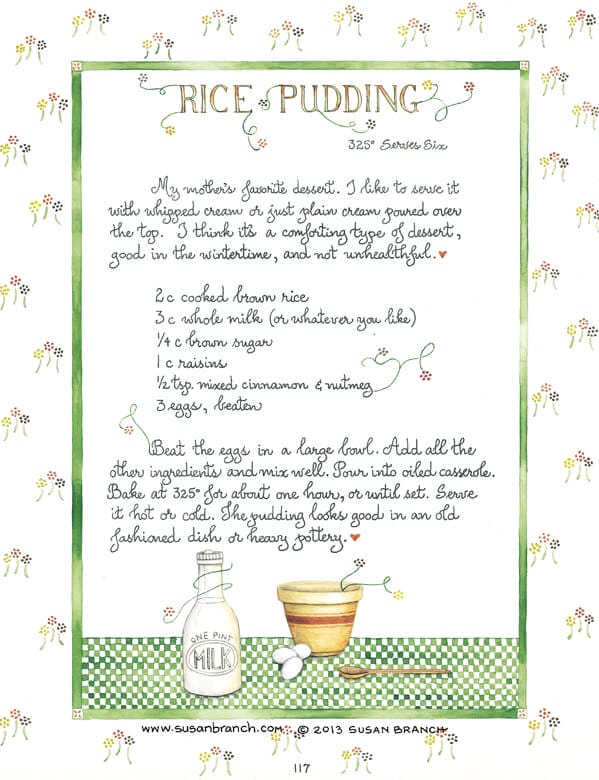 RICE PUDDING
325° Serves Six
My mother's favorite dessert. I like to serve it
with whipped cream or just plain cream poured over
the top. I think it's a comforting type of dessert,
good in the wintertime, and not unhealthful.
2 c cooked brown rice
3 c whole milk (or whatever you like)
1/4 c brown sugar
1 c raisins
1/2 tsp. mixed cinnamon & nutmeg
3 eggs, beaten
Beat the eggs in a large bowl. Add all the
other ingredients and mix well. Pour into oiled casserole.
Bake at 325° for about one hour, or until set. Serve
it hot or cold. The pudding looks good in an old
fashioned dish or heavy pottery.
ONE PINT
MILK
www.susanbranch.com © 2013 SUSAN BRANCH
117